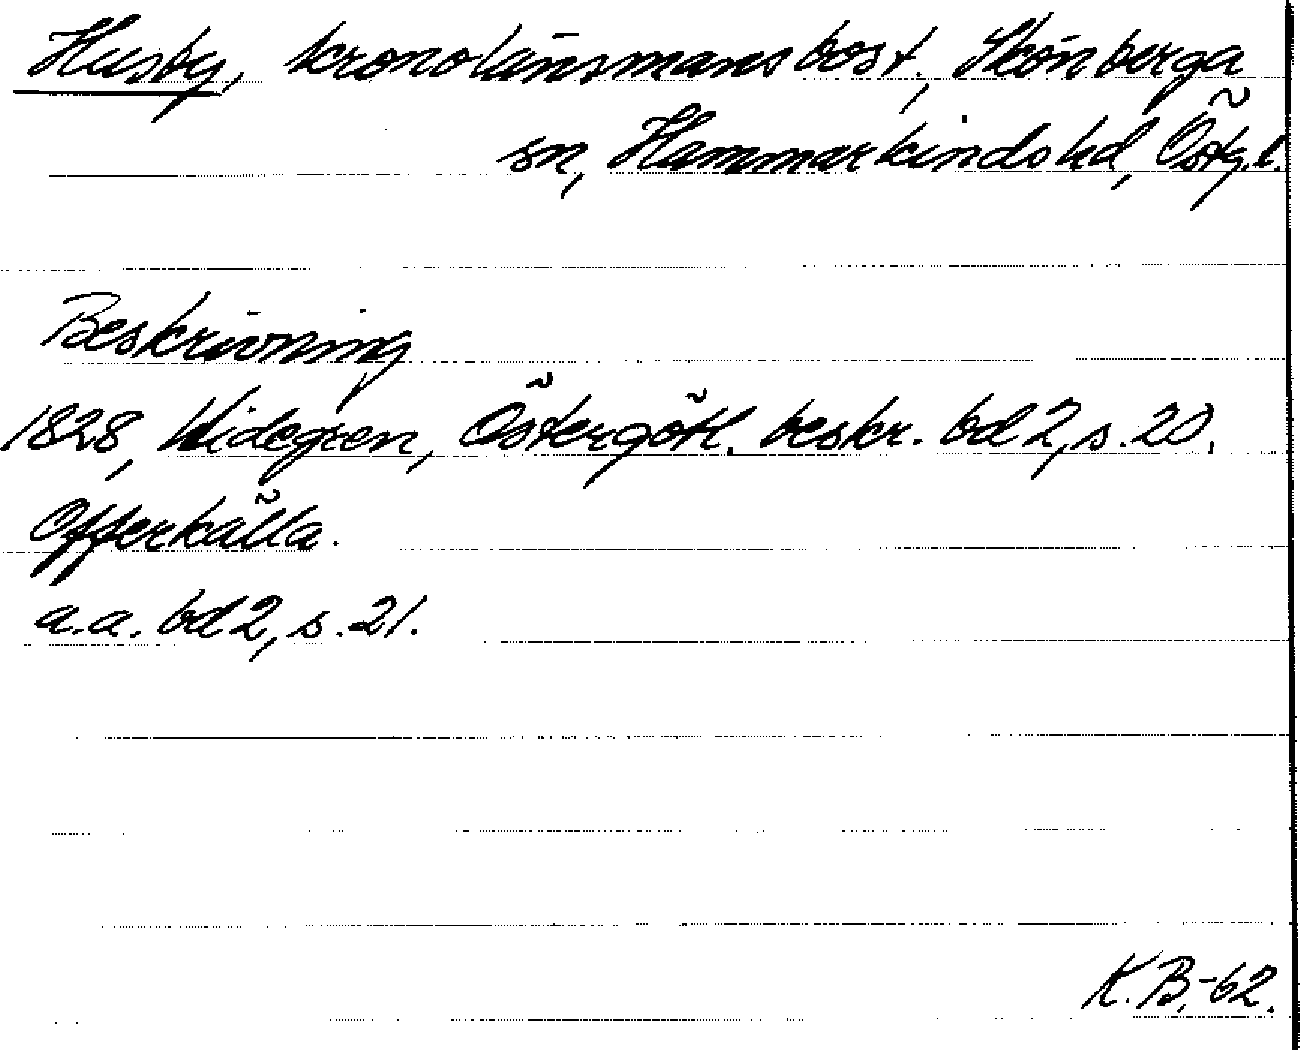 Husby, kronolänsmansbost., Skönberga
sn, Hammarkinds hd, Östg.l.
Beskrivning
1828, Widegren, Östergötl. beskr. bd 2, s. 20.
Offerkälla.
a.a. bd 2, s. 21.
K.B.-62.